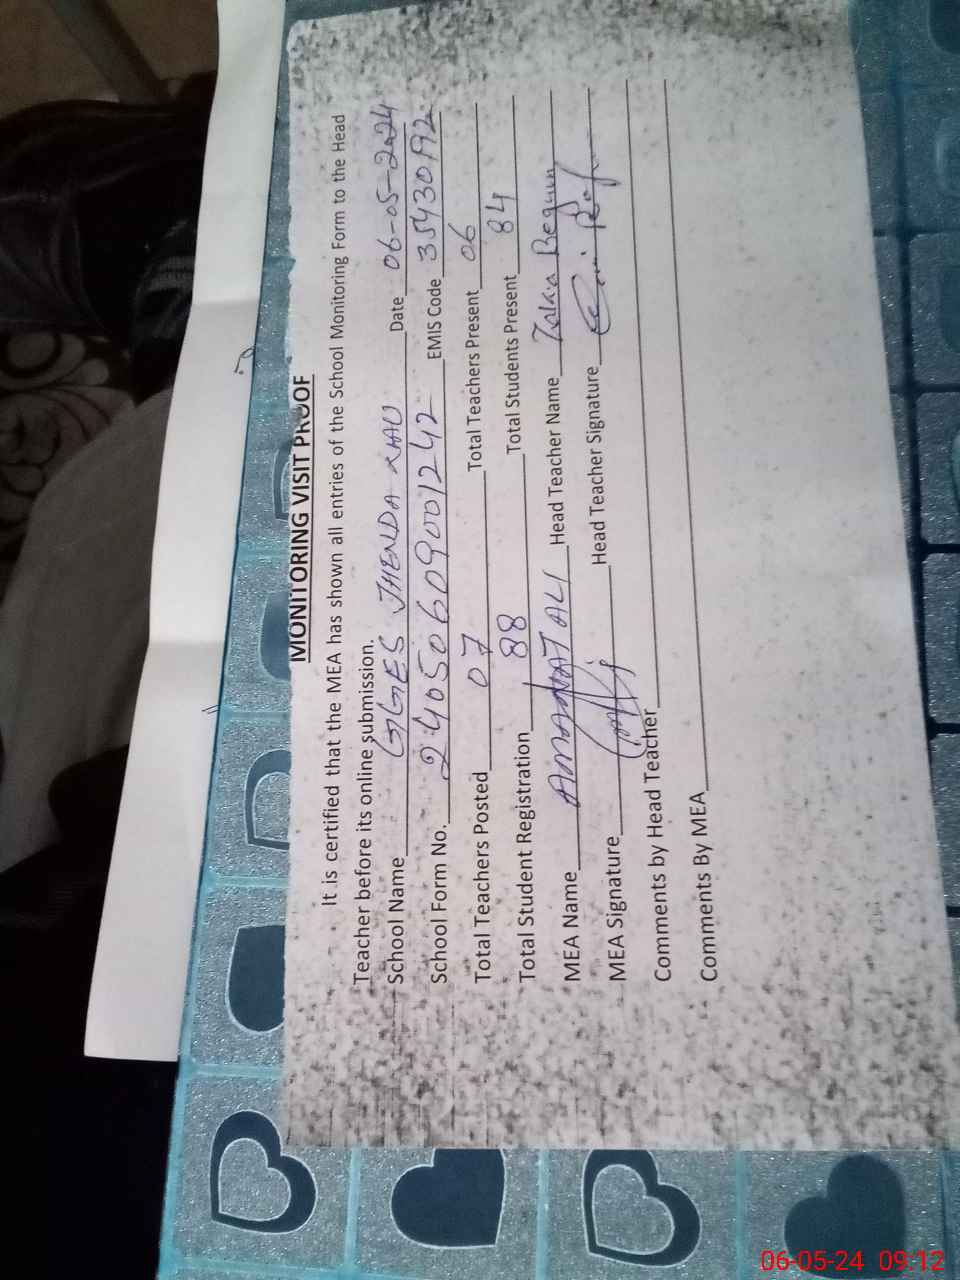 MONITORING VISIT PROOF
It is certified that the MEA has shown all entries of the School Monitoring Form to the Head
Teacher before its online submission.
School Name GGES JHENDA Date 06-05-2024
School Form No. 24050609001242 EMIS Code 35430192
Total Teachers Posted 07 Total Teachers Present 06
Total Student Registration 88 Total Students Present 84
MEA Name AMANAT ALI Head Teacher Name Begum
MEA Signature Head Teacher Signature
Comments by Head Teacher
Comments By MEA
06-05-24 09:12